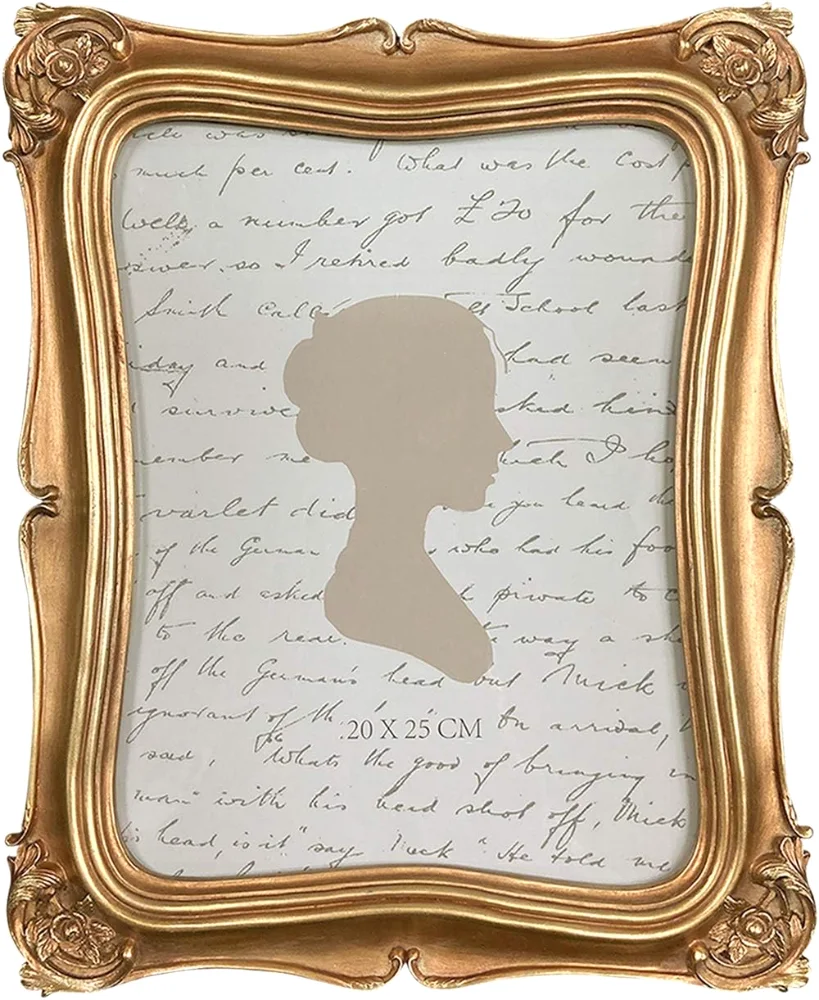 much per cent. What was the Cost
Well, a number got £20 for the
so I retired badly wounde
Smith Calle School last
day and had seen
survive sked him
ember me I ho
varlet did you heard the
of the German who had his foo
off and asked private to
to the rear. way a
off the German's head but Mick
ignorant of th On arrival,
20 X 25 CM
said, "Whats the good of bringing
man" with his head shot off, Mick
head, is it" say Mick "He told me